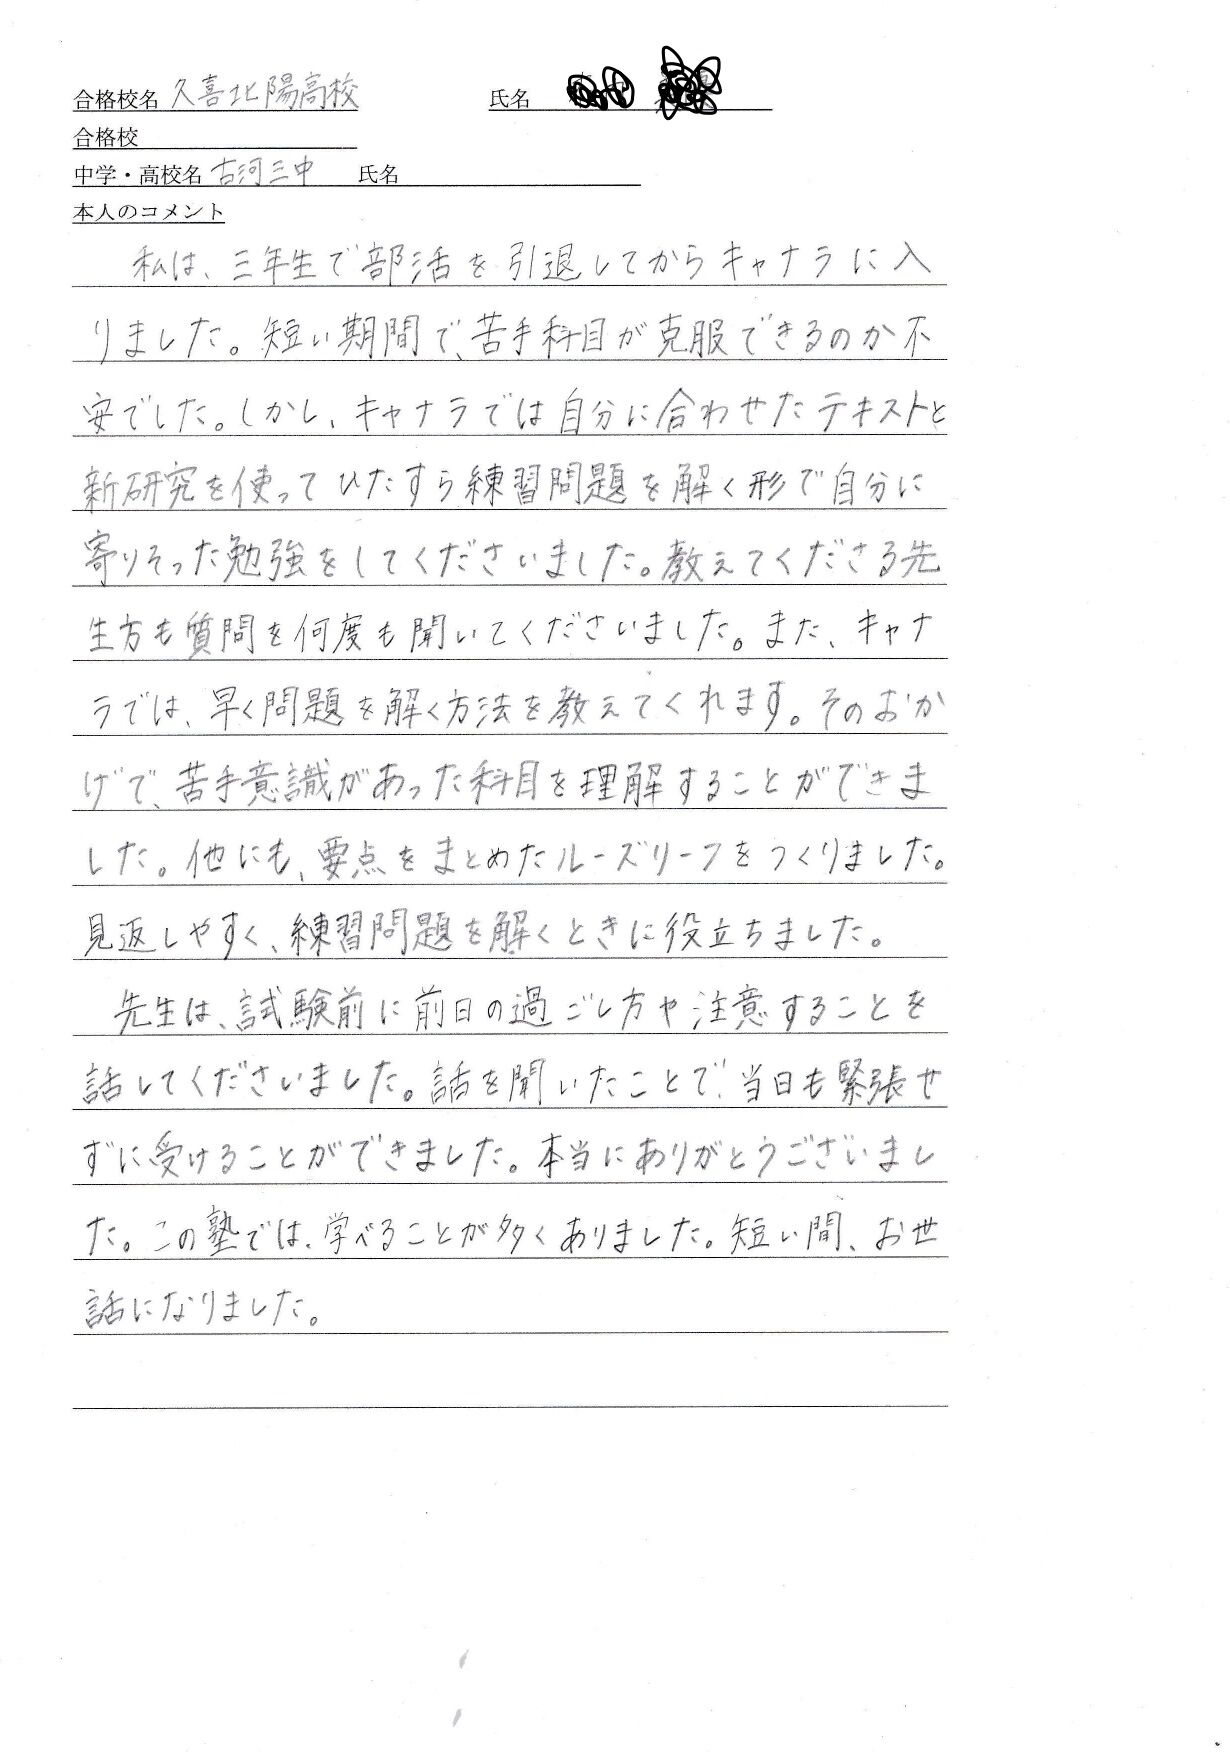 合格校名 久喜北陽高校 氏名
合格校
中学・高校名 古河三中 氏名
本人のコメント
私は、三年生で部活を引退してからキャナラに入
りました。短い期間で、苦手科目が克服できるのか不
安でした。しかし、キャナラでは自分に合わせたテキストと
新研究を使ってひたすら練習問題を解く形で自分に
寄りそった勉強をしてくださいました。教えてくださる先
生方も質問を何度も聞いてくださいました。また、キャナ
ラでは、早く問題を解く方法を教えてくれます。そのおか
げで、苦手意識があった科目を理解することができま
した。他にも、要点をまとめたルーズリーフをつくりました。
見返しやすく、練習問題を解くときに役立ちました。
先生は、試験前に前日の過ごし方や注意することを
話してくださいました。話を聞いたことで、当日も緊張せ
ずに受けることができました。本当にありがとうございまし
た。この塾では、学べることが多くありました。短い間、お世
話になりました。